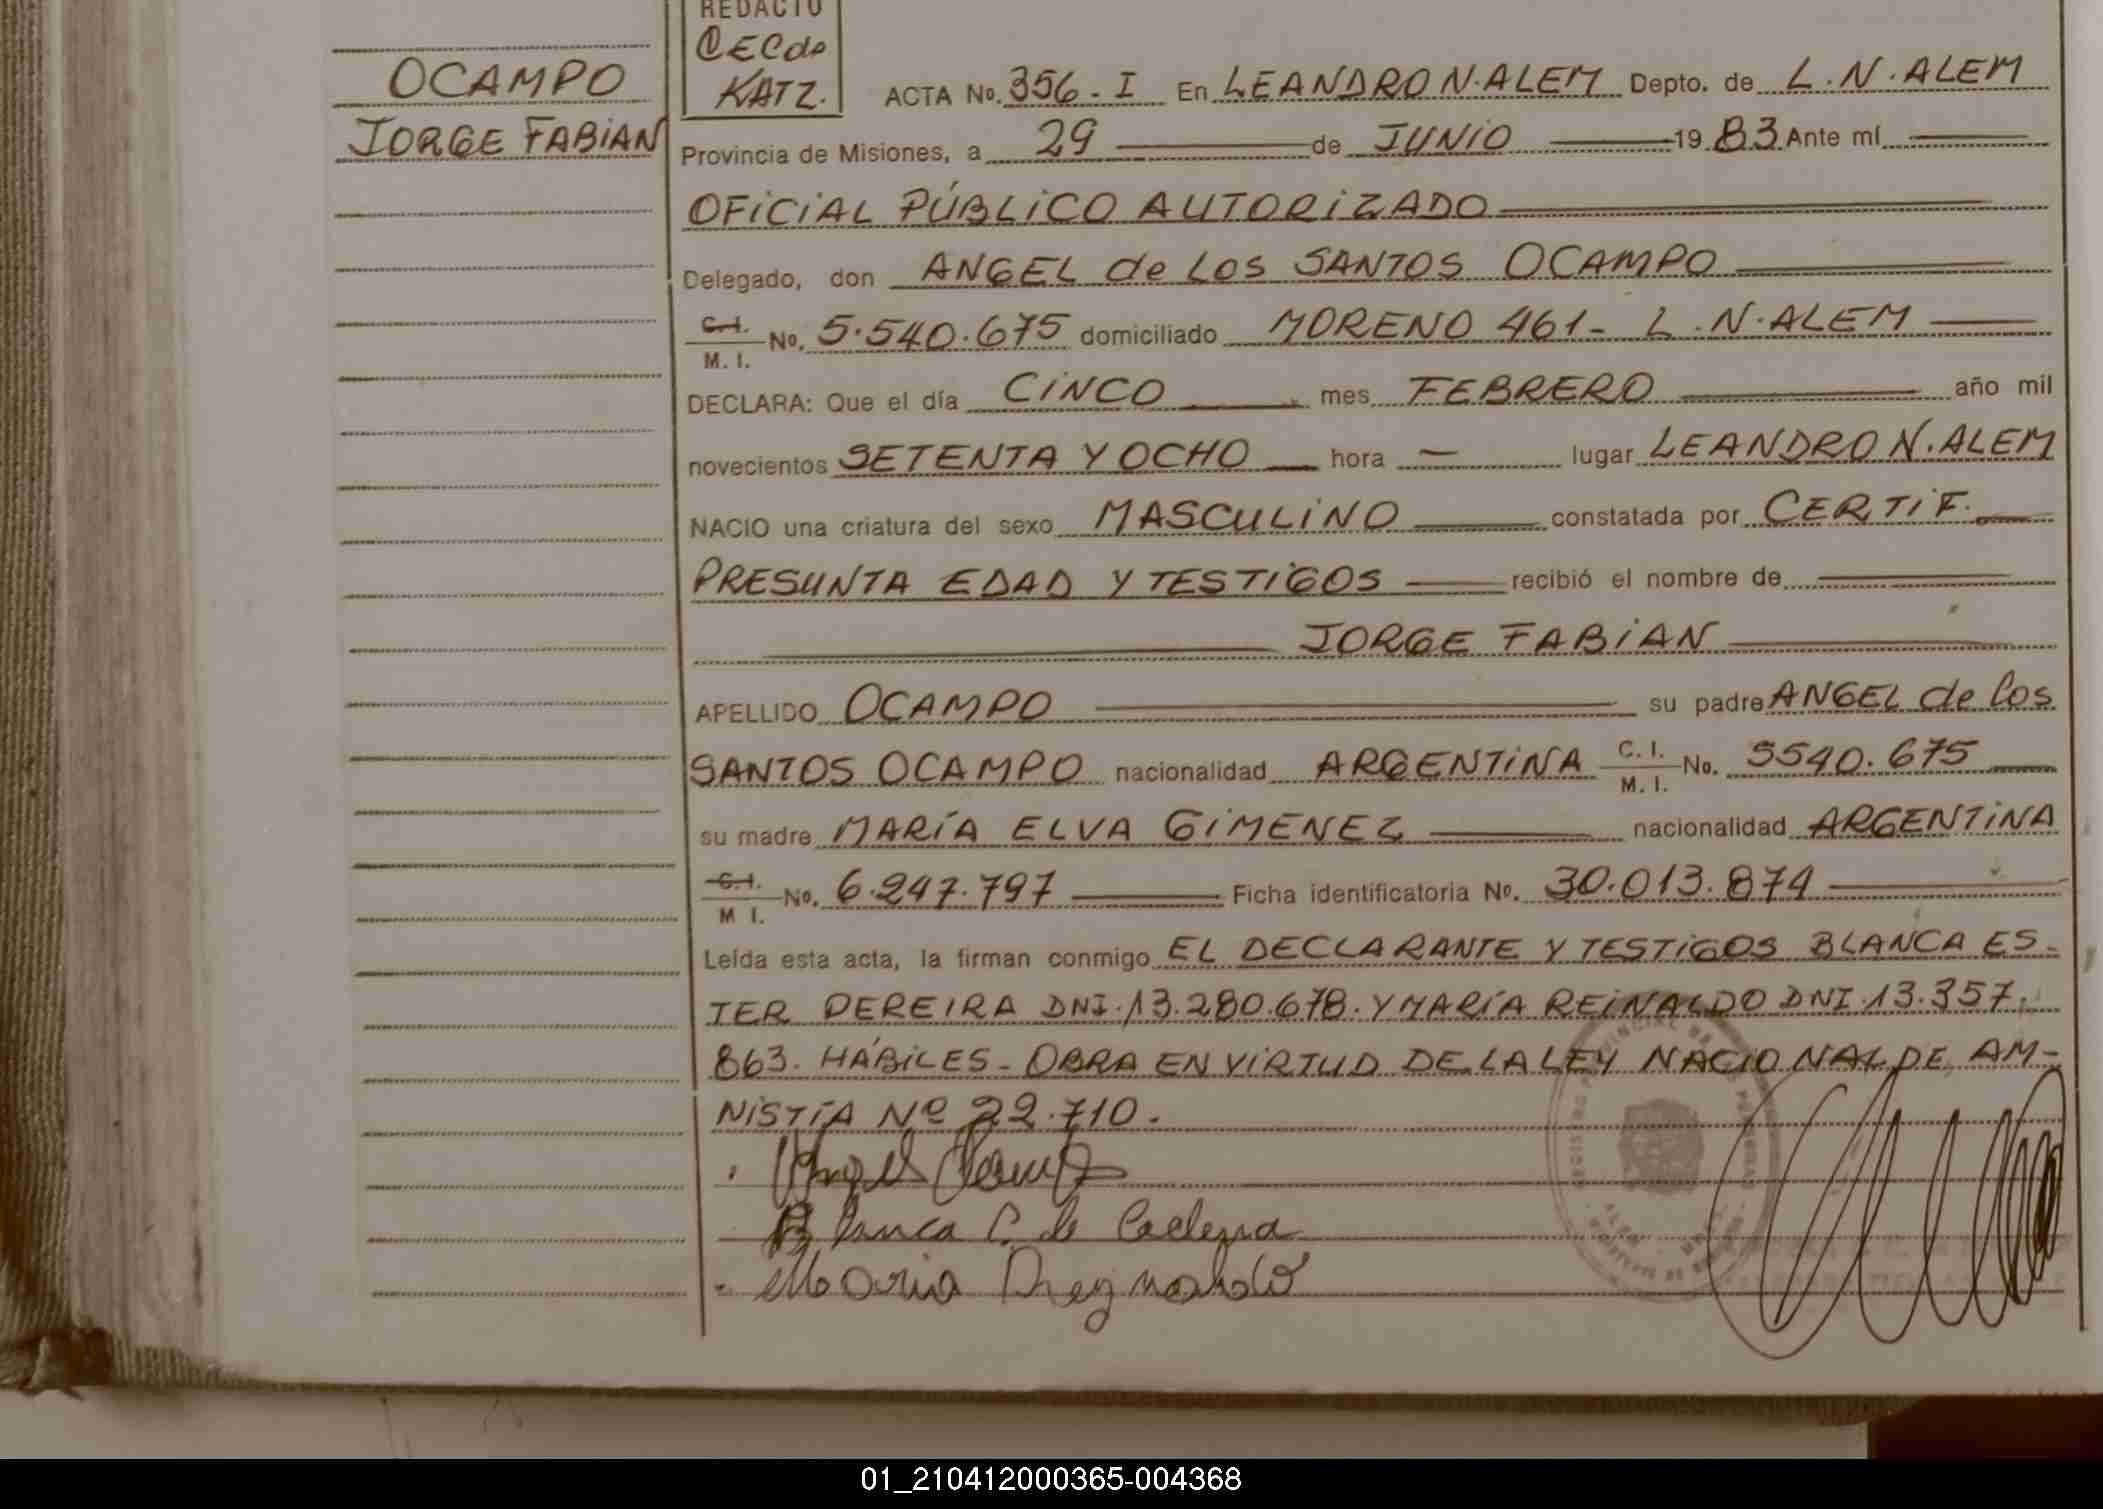 OCAMPO
JORGE FABIAN
REDACTO
CECdo
KATZ.
ACTA No. 356 - I En LEANDRO N. ALEM Depto. de L. N. ALEM
Provincia de Misiones, a 29 de JUNIO 19 83 Ante mí
OFICIAL PÚBLICO AUTORIZADO
Delegado, don ANGEL de LOS SANTOS OCAMPO
C. I.
M. I. No. 5.540.675 domiciliado MORENO 461 - L. N. ALEM
DECLARA: Que el día CINCO mes FEBRERO año mil
novecientos SETENTA Y OCHO hora — lugar LEANDRO N. ALEM
NACIO una criatura del sexo MASCULINO constatada por CERTIF.
PRESUNTA EDAD Y TESTIGOS recibió el nombre de
JORGE FABIAN
APELLIDO OCAMPO su padre ANGEL de los
SANTOS OCAMPO nacionalidad ARGENTINA C. I. M. I. No. 5540.675
su madre MARÍA ELVA GIMENEZ nacionalidad ARGENTINA
C. I.
M I. No. 6.247.797 Ficha identificatoria No. 30.013.874
Leída esta acta, la firman conmigo EL DECLARANTE Y TESTIGOS BLANCA ES-
TER PEREIRA DNI. 13.280.678. Y MARÍA REINALDO DNI. 13.357.
863. HÁBILES - OBRA EN VIRTUD DE LA LEY NACIONAL DE AM-
NISTÍA Nº 22.710.
Angel Ocampo
Blanca P. de
Maria Reynaldo
01_210412000365-004368